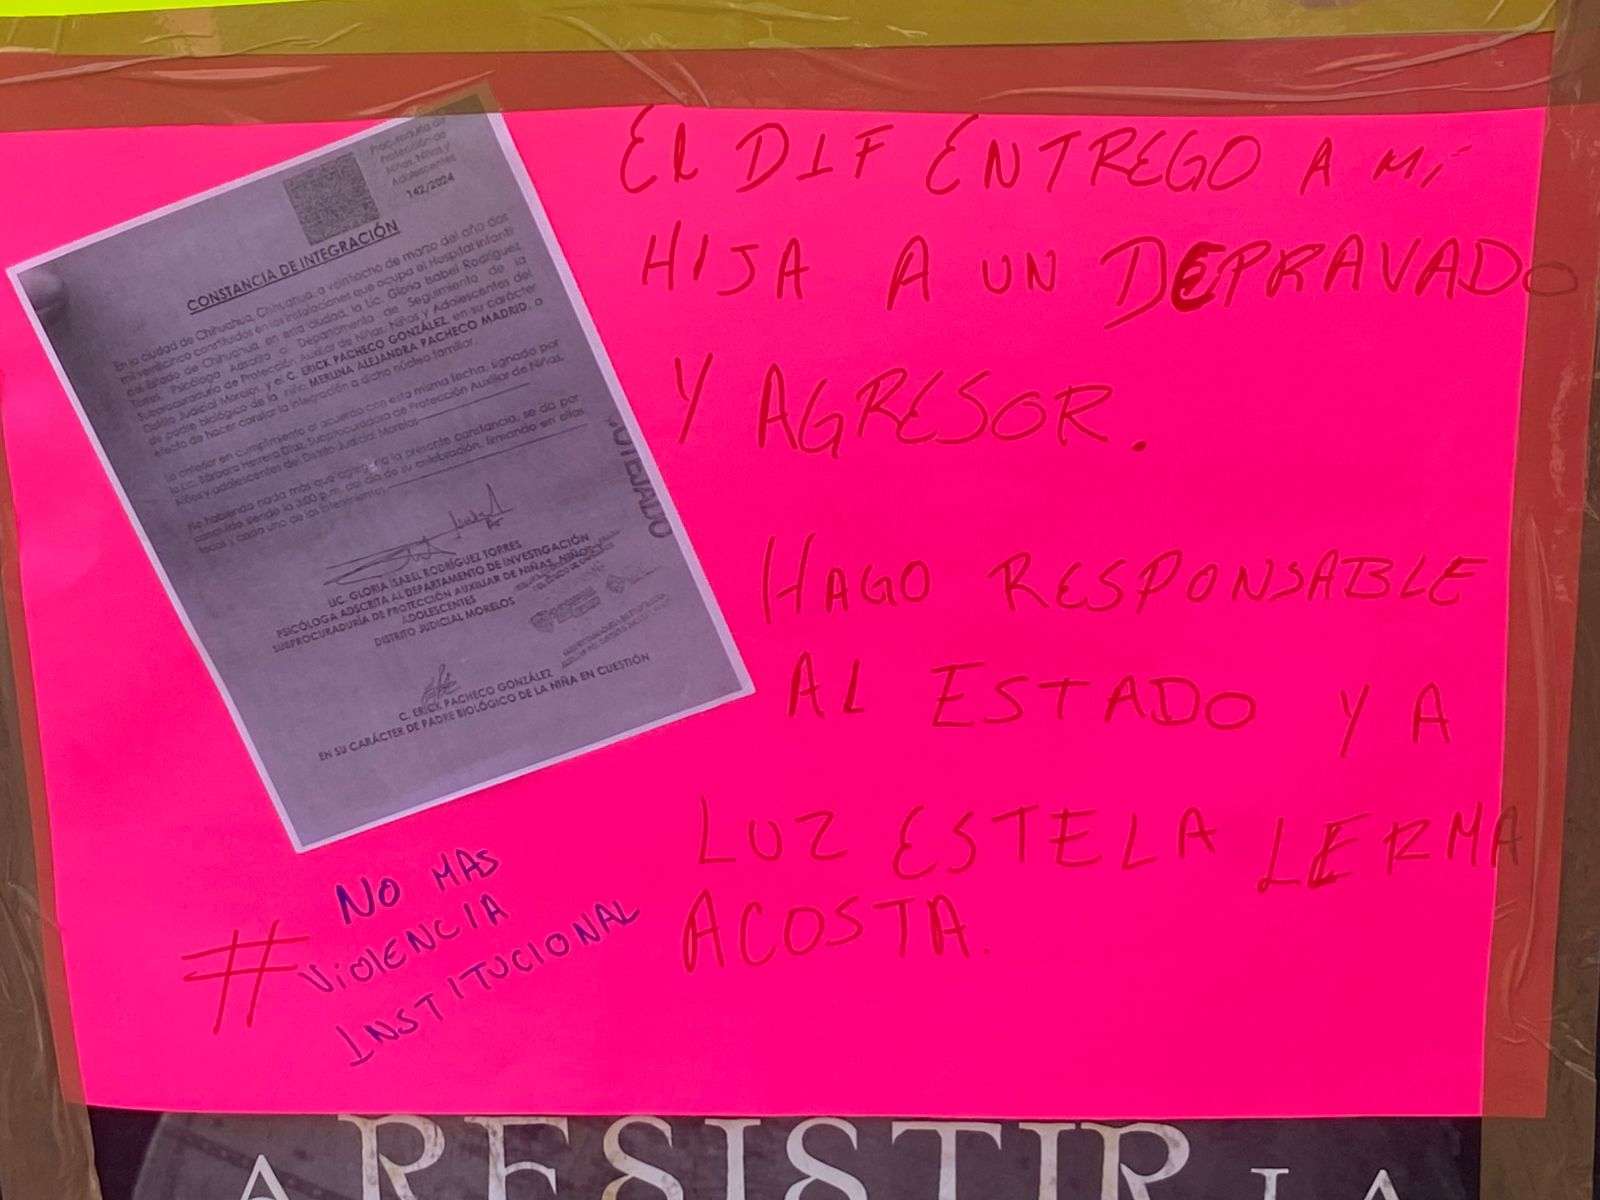 Procuraduría de
Protección de
Niñas, Niños y
Adolescentes
142/2024
CONSTANCIA DE INTEGRACIÓN
En la ciudad de Chihuahua, Chihuahua, a veintiocho de marzo del año dos
mil veinticinco constituidos en las instalaciones que ocupa el Hospital Infantil
del Estado de Chihuahua, en esta ciudad, la Lic. Gloria Isabel Rodríguez
Torres, Psicóloga Adscrita al Departamento de Seguimiento de la
Subprocuraduría de Protección Auxiliar de Niñas, Niños y Adolescentes del
Distrito Judicial Morelos, y el C. ERICK PACHECO GONZÁLEZ, en su carácter
de padre biológico de la niña MERLINA ALEJANDRA PACHECO MADRID, a
efecto de hacer constar la integración a dicho núcleo familiar.
Lo anterior en cumplimiento al acuerdo con esta misma fecha, signado por
la Lic. Bárbara Herrera Díaz, Subprocuradora de Protección Auxiliar de Niñas,
Niños y adolescentes del Distrito Judicial Morelos
No habiendo nada más que agregar a la presente constancia, se da por
concluida siendo la 3:00 p.m. del día de su celebración, firmando en ellas
todos y cada uno de los intervinientes
LIC. GLORIA ISABEL RODRÍGUEZ TORRES
PSICÓLOGA ADSCRITA AL DEPARTAMENTO DE INVESTIGACIÓN
SUBPROCURADURÍA DE PROTECCIÓN AUXILIAR DE NIÑAS, NIÑOS Y
ADOLESCENTES
DISTRITO JUDICIAL MORELOS
C. ERICK PACHECO GONZÁLEZ
EN SU CARÁCTER DE PADRE BIOLÓGICO DE LA NIÑA EN CUESTIÓN
EL DIF ENTREGO A MI
HIJA A UN DEPRAVADO
Y AGRESOR.
HAGO RESPONSABLE
AL ESTADO Y A
LUZ ESTELA LERMA
ACOSTA.
# NO MAS
VIOLENCIA
INSTITUCIONAL
A RESISTIR LA